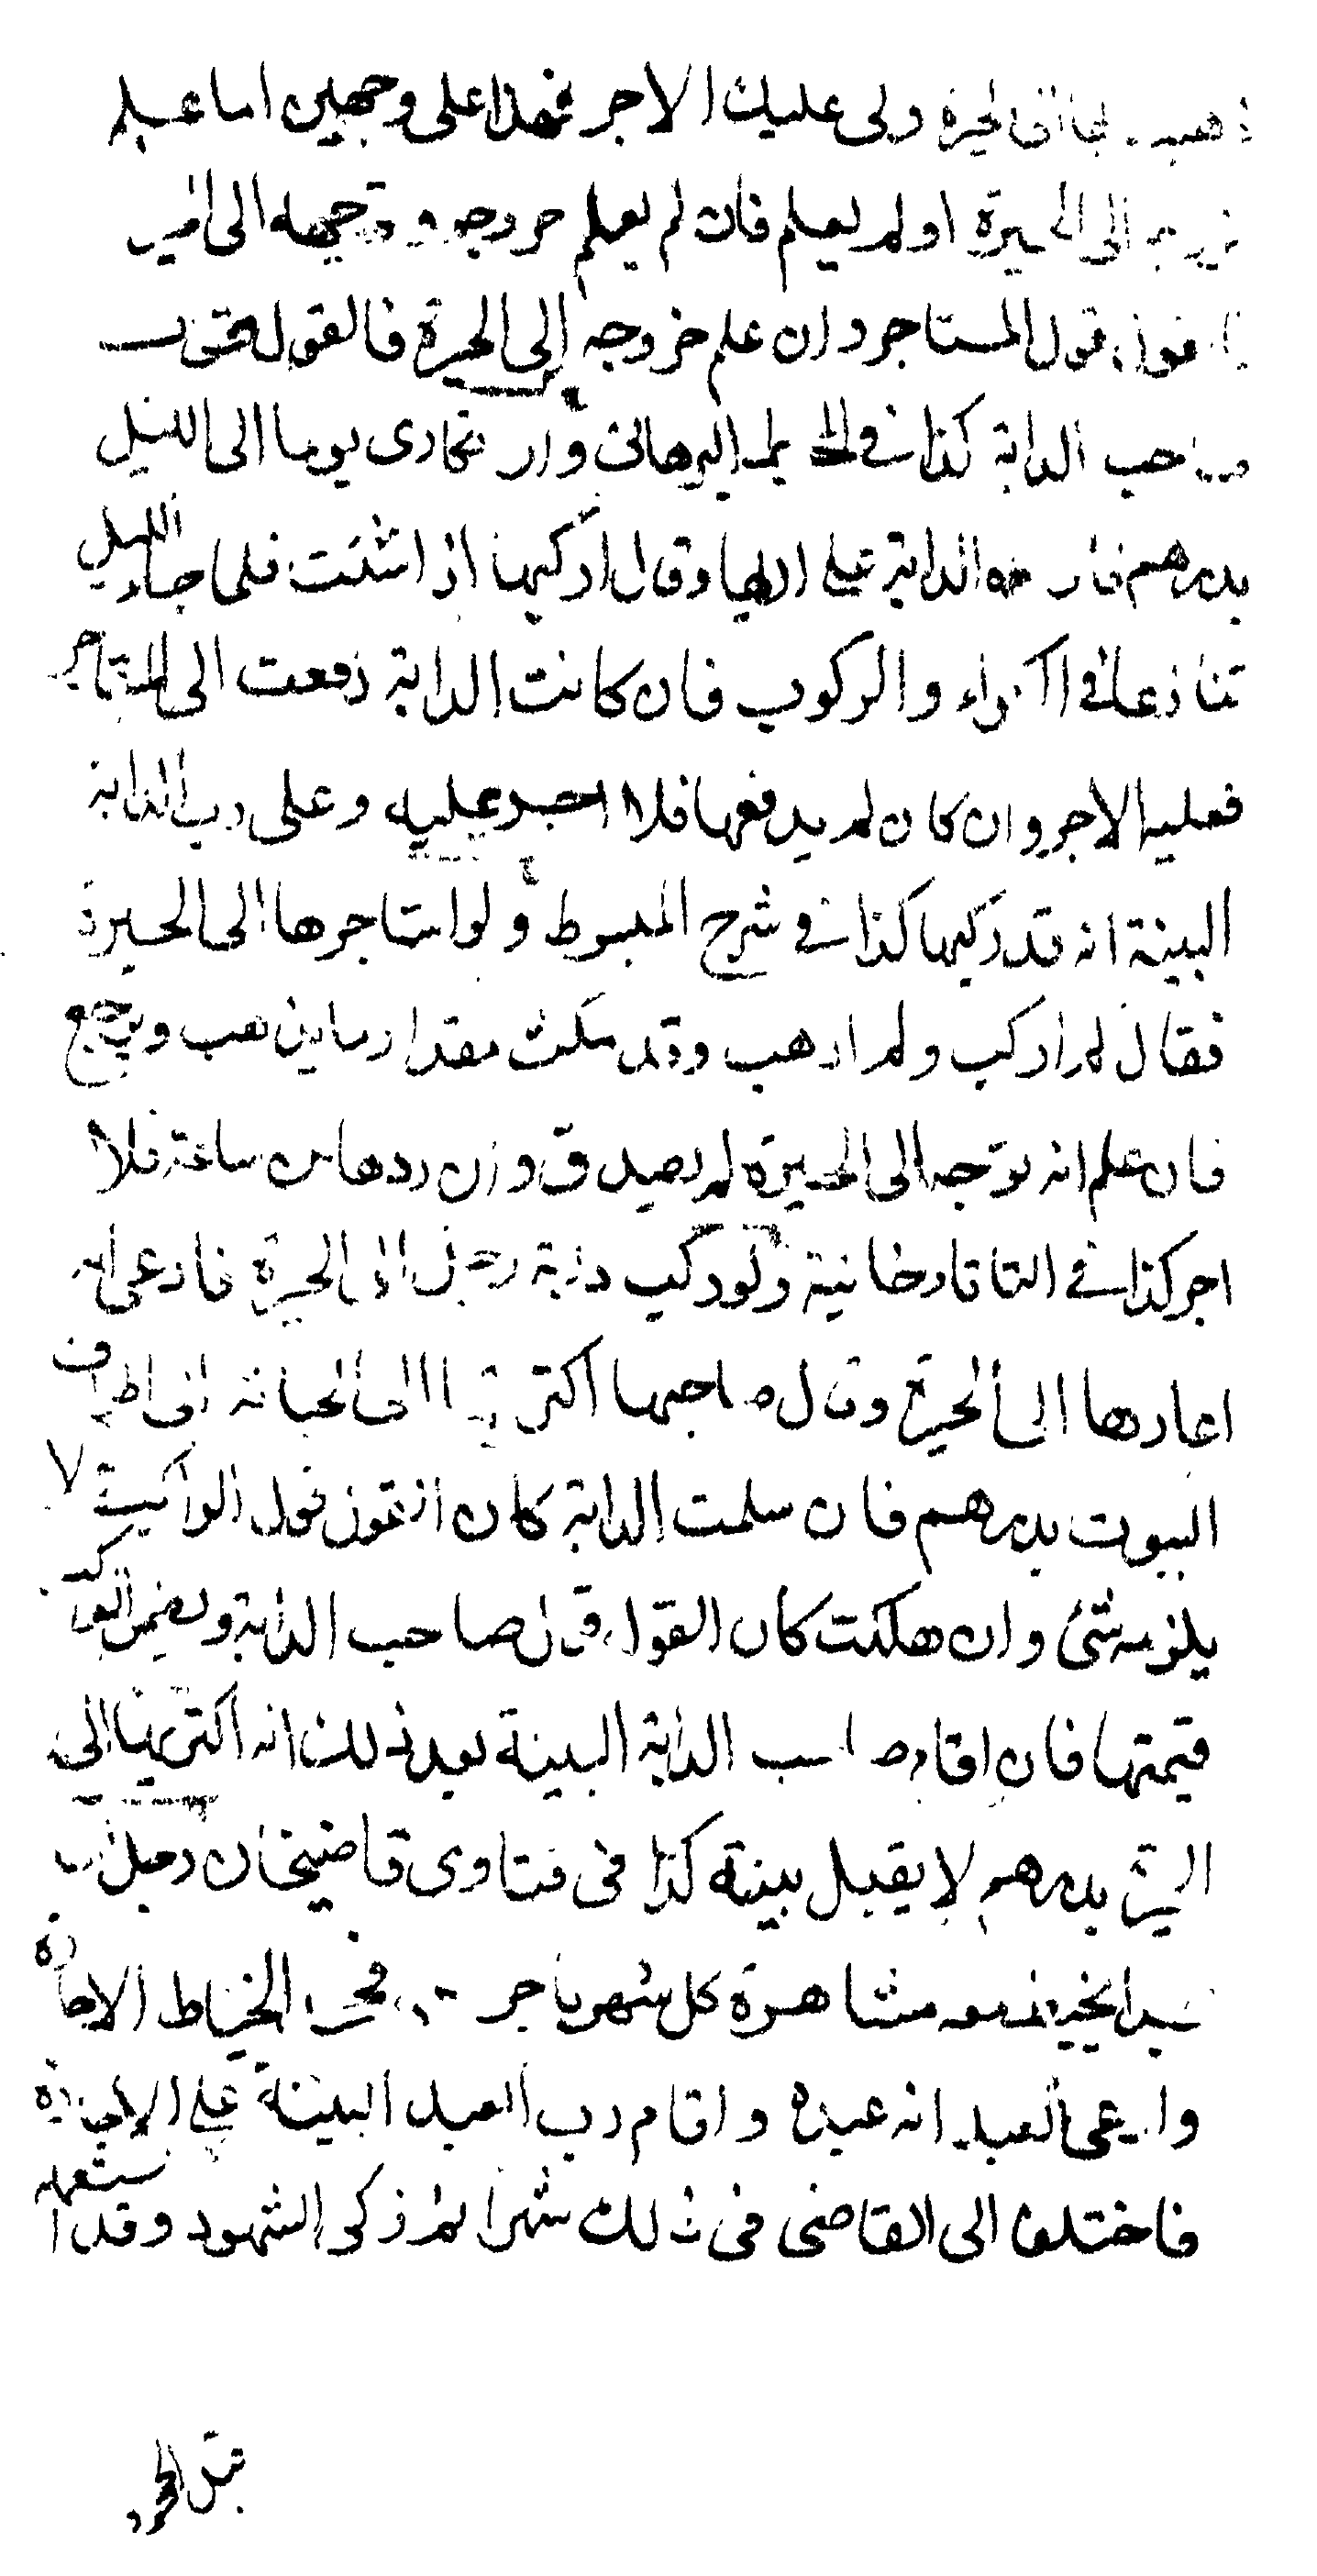 ذهبت بها الى الحيرة ولى عليك الاجر فهذا على وجهين اما علم
الى الحيرة او لم يعلم فان لم يعلم خروجه وتوجهه الى
فالقول قول المستاجر وان علم خروجه الى الحيرة فالقول قول
صاحب الدابة كذا فى المحيط البرهانى وان تكارى يوما الى الليل
بدرهم فاراه الدابة على اريها وقال اركبها اذا شئت فلما جاء الليل
تنازعا فى الكراء والركوب فان كانت الدابة دفعت الى المستاجر
فعليه الاجر وان كان لم يدفعها فلا اجر عليه وعلى رب الدابة
البينة انه قد ركبها كذا فى شرح المبسوط ولو استاجرها الى الحيرة
فقال لم اركب ولم اذهب وقد مكث مقدار ما يذهب ويرجع
فان علم انه توجه الى الحيرة لم يصدق وان ردها من ساعته فلا
اجر كذا فى التاتارخانية ولو ركب دابة رجل الى الحيرة فادعى انه
اعارها الى الحيرة وقال صاحبها اكتريتها الى الجبانة اطراف
البيوت بدرهم فان سلمت الدابة كان القول قول الراكب لا
يلزمه شئ وان هلكت كان القول قول صاحب الدابة ويضمن الراكب
قيمتها فان اقام صاحب الدابة البينة بعد ذلك انه اكترى منا الى
بدرهم لا يقبل بينة كذا فى فتاوى قاضيخان رجل
عبدا يخيط معه مشاهرة كل شهر باجر فجحد الخياط الاجارة
وادعى العبد انه عبده واقام رب العبد البينة على الاجارة
فاختلفا الى القاضى فى ذلك شهرا ثم زكى الشهود وقد استعمله
قبل الجحود